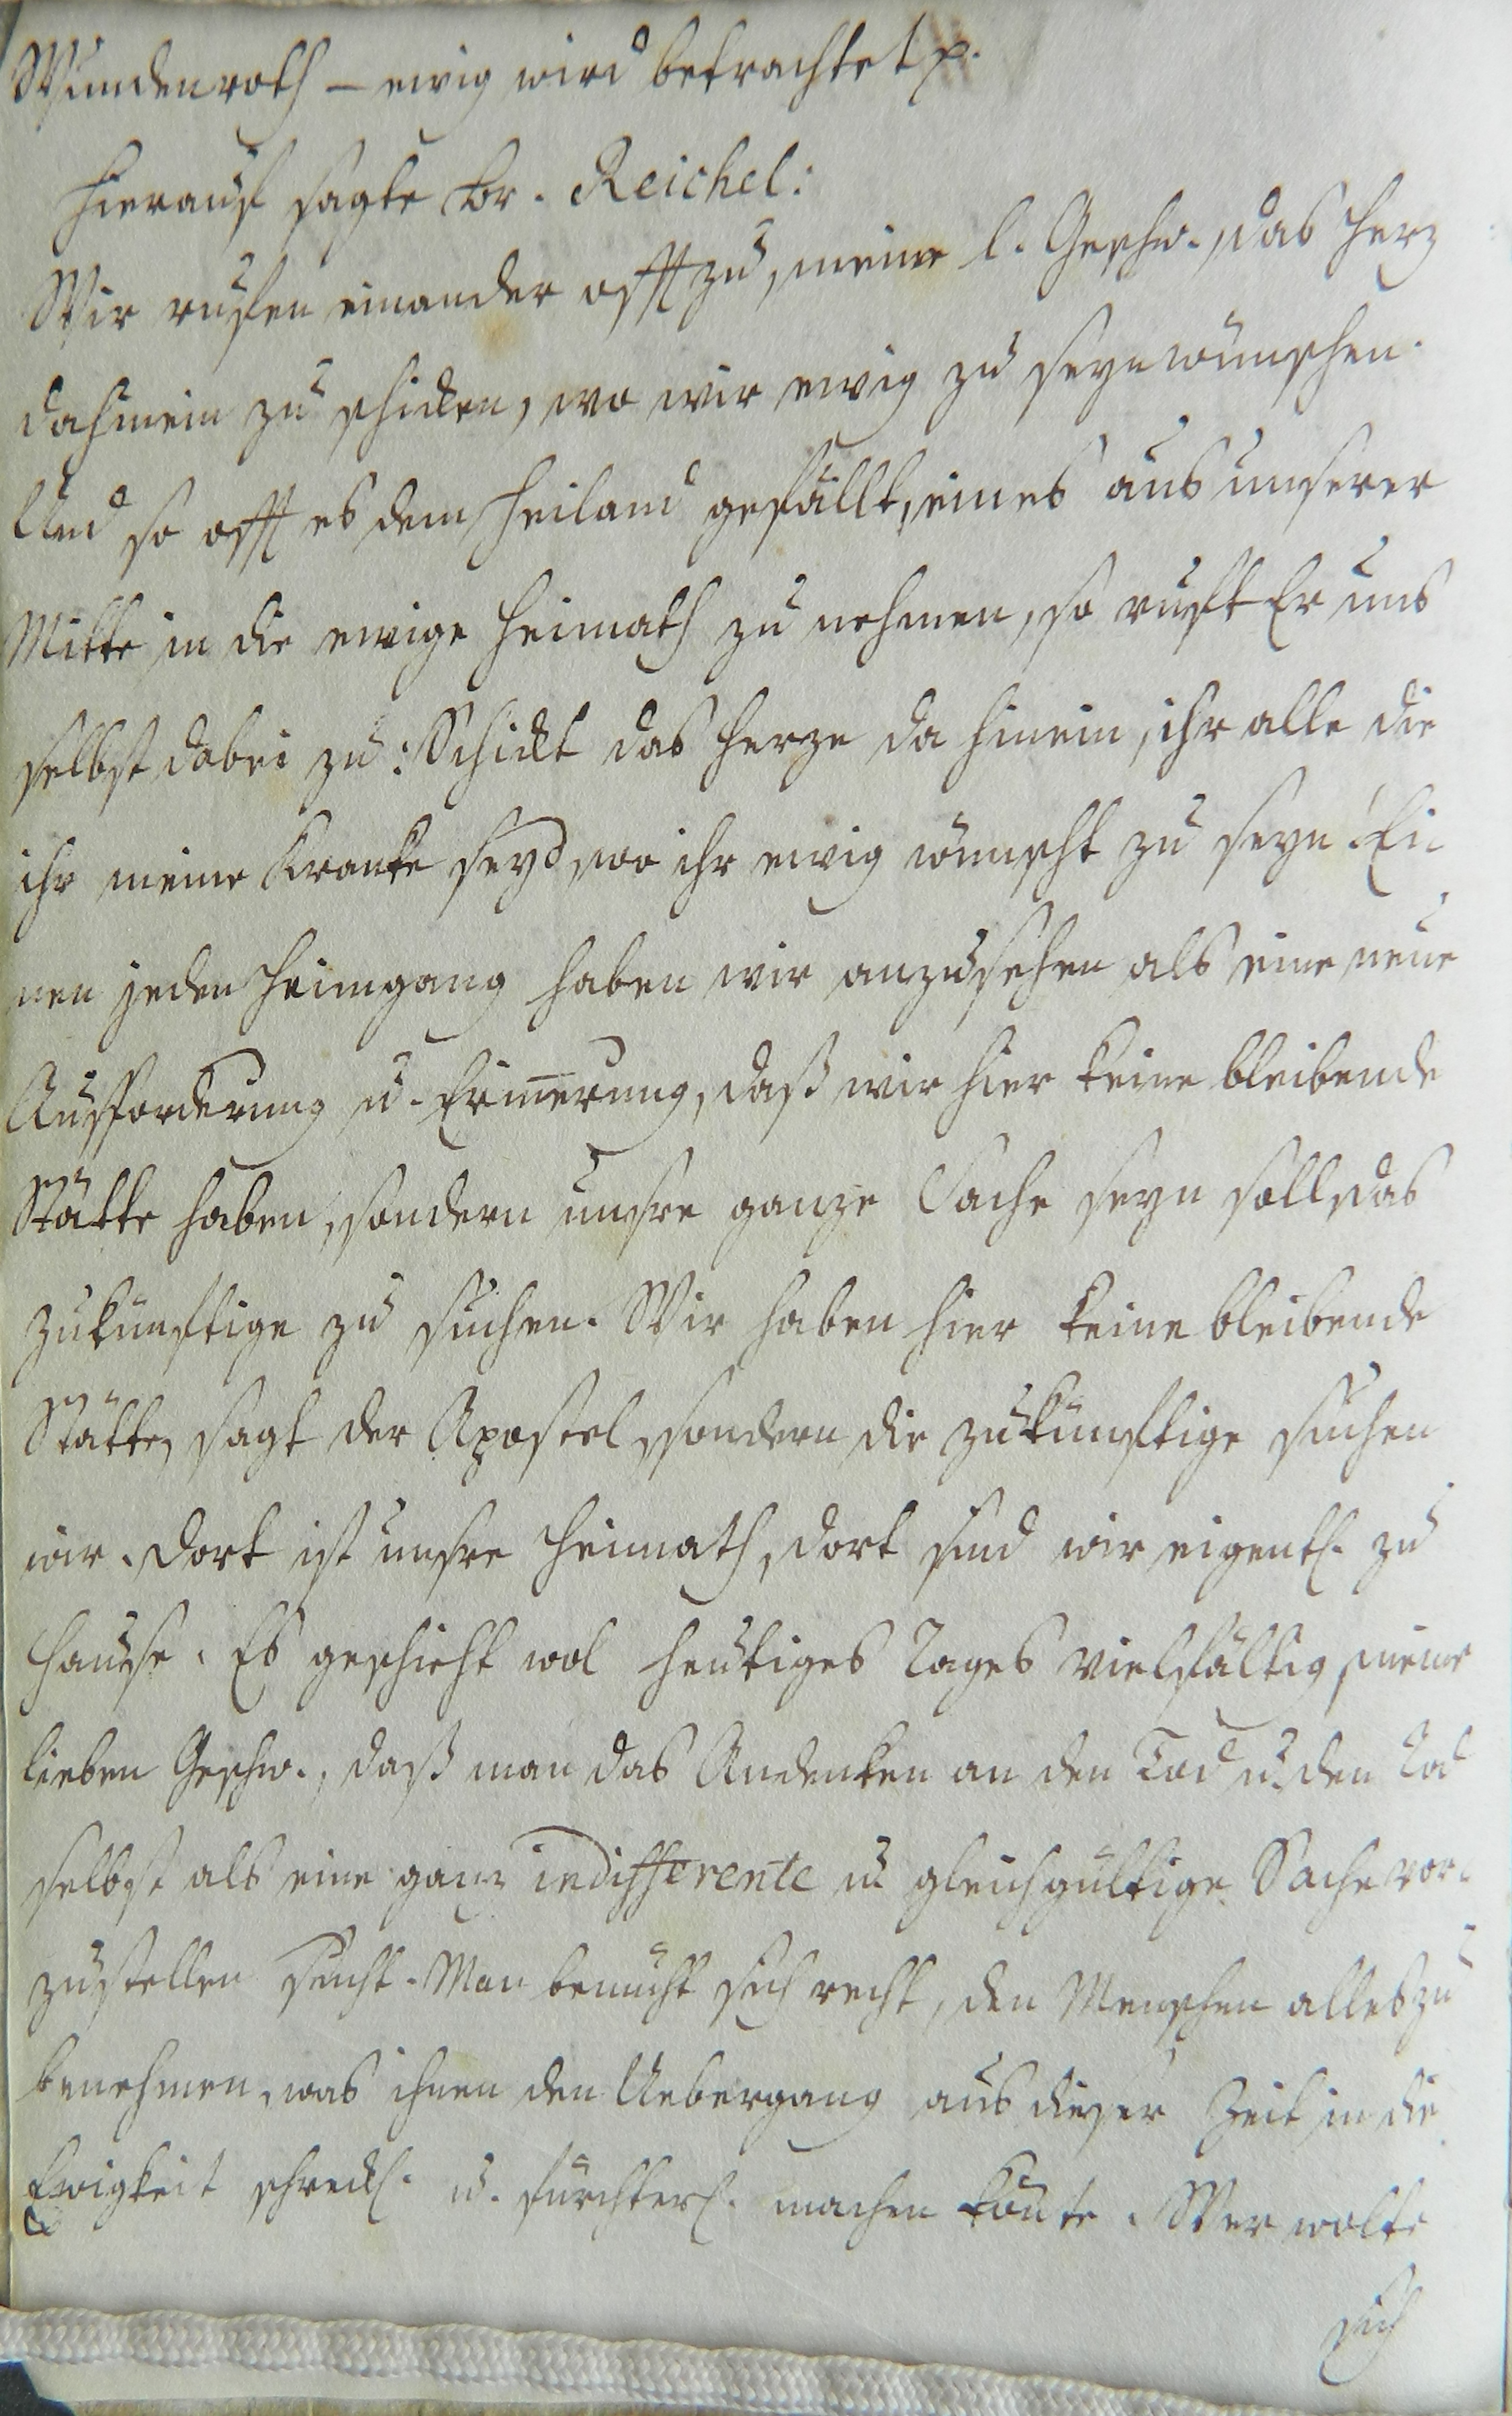 Wundenroth – ewig wird betrachtet p.
Hierauf sagte Br. Reichel:
Wir rufen einander offt zu, meine l. Geschw., das Herz
dahinein zu schicken, wo wir ewig zu seyn wünschen.
Und so offt es dem Heiland gefällt, eines aus unserer
Mitte in die ewige Heimath zu nehmen, so ruft Er uns
selbst dabei zu: Schickt das Herze da hinein, ihr alle die
ihr meine Kranke seyd, wo ihr ewig wünscht zu seyn! Ei-
nen jeden Heimgang haben wir anzusehen als eine neue
Aufforderung u. Erinerung, daß wir hier keine bleibende
Stätte haben, sondern unsre ganze Sache seyn soll, das
zukünftige zu suchen. Wir haben hier keine bleibende
Stätte, sagt der Apostel, sondern die zukünftige suchen
wir. Dort ist unsre Heimath, dort sind wir eigentl. zu
Hause. Es geschieht wol heutiges Tages vielfältig, meine
lieben Geschw., daß man das Andenken an den Tod u. den Tod
selbst als eine ganz indifferente u. gleichgültige Sache vor-
zustellen sucht. Man bemüht sich recht, den Menschen alles zu
benehmen, was ihnen den Uebergang aus dieser Zeit in die
Ewigkeit schreckl. u. fürchterl. machen könte. Wer wolte
sich